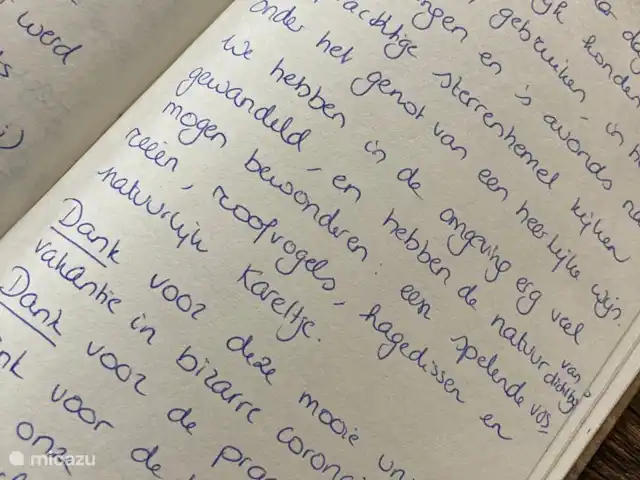 werd
gebruiken, in h
prachtige sterrenhemel kijken
onder het genot van een heerlijke wijn.
We hebben in de omgeving erg veel
gewandeld, en hebben de natuur van dichtbij
mogen bewonderen: een spelende vos-
reeën, roofvogels, hagedissen en
natuurlijk Kareltje.
Dank voor deze mooie un
vakantie in bizarre corona
Dank voor de pra
voor de
onze
micazu